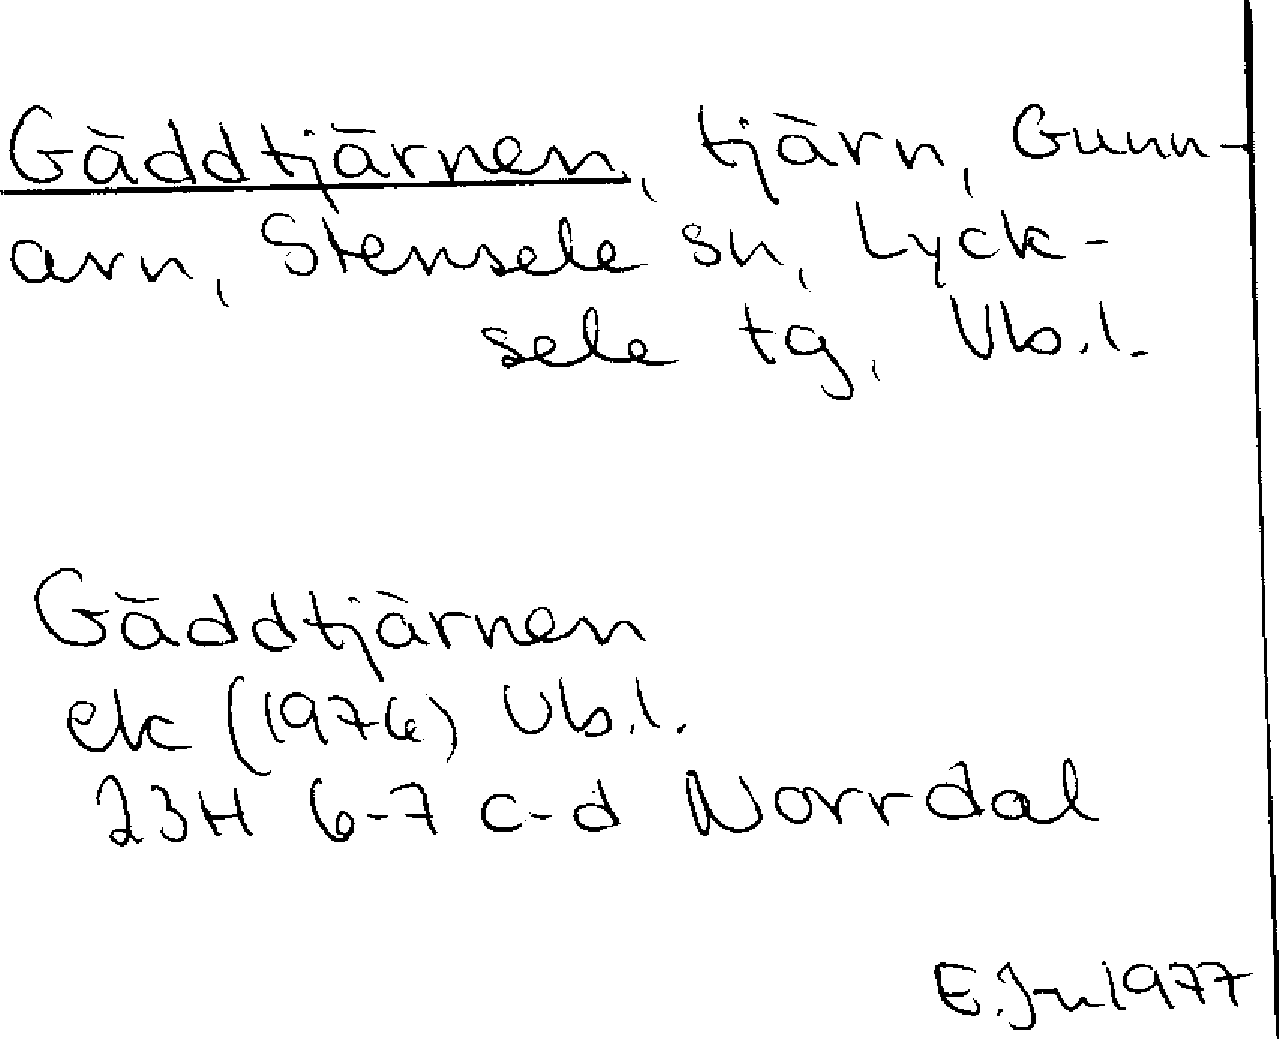 Gäddtjärnen, tjärn, Gunn-
arn, Stensele sn, Lyck-
sele tg, Vb.l.
Gäddtjärnen
ek (1976) Vb.l.
23H 6-7 c-d Norrdal
E. 1977